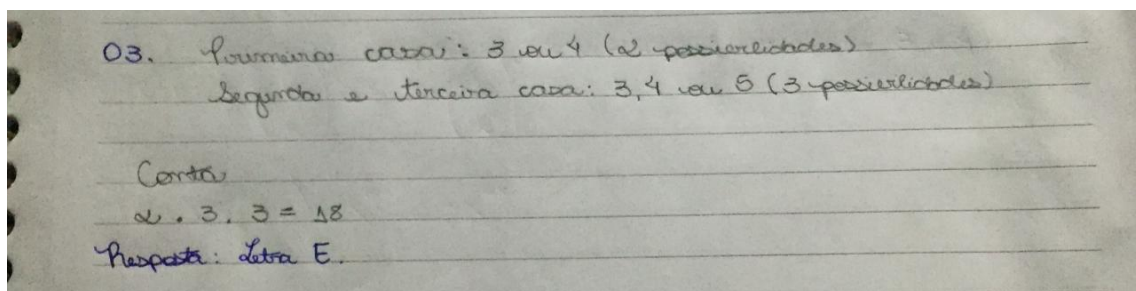 03. Primeira casa: 3 ou 4 (2 possibilidades)
Segunda e terceira casa: 3, 4 ou 5 (3 possibilidades)
Conta
2 . 3 . 3 = 18
Resposta: Letra E.